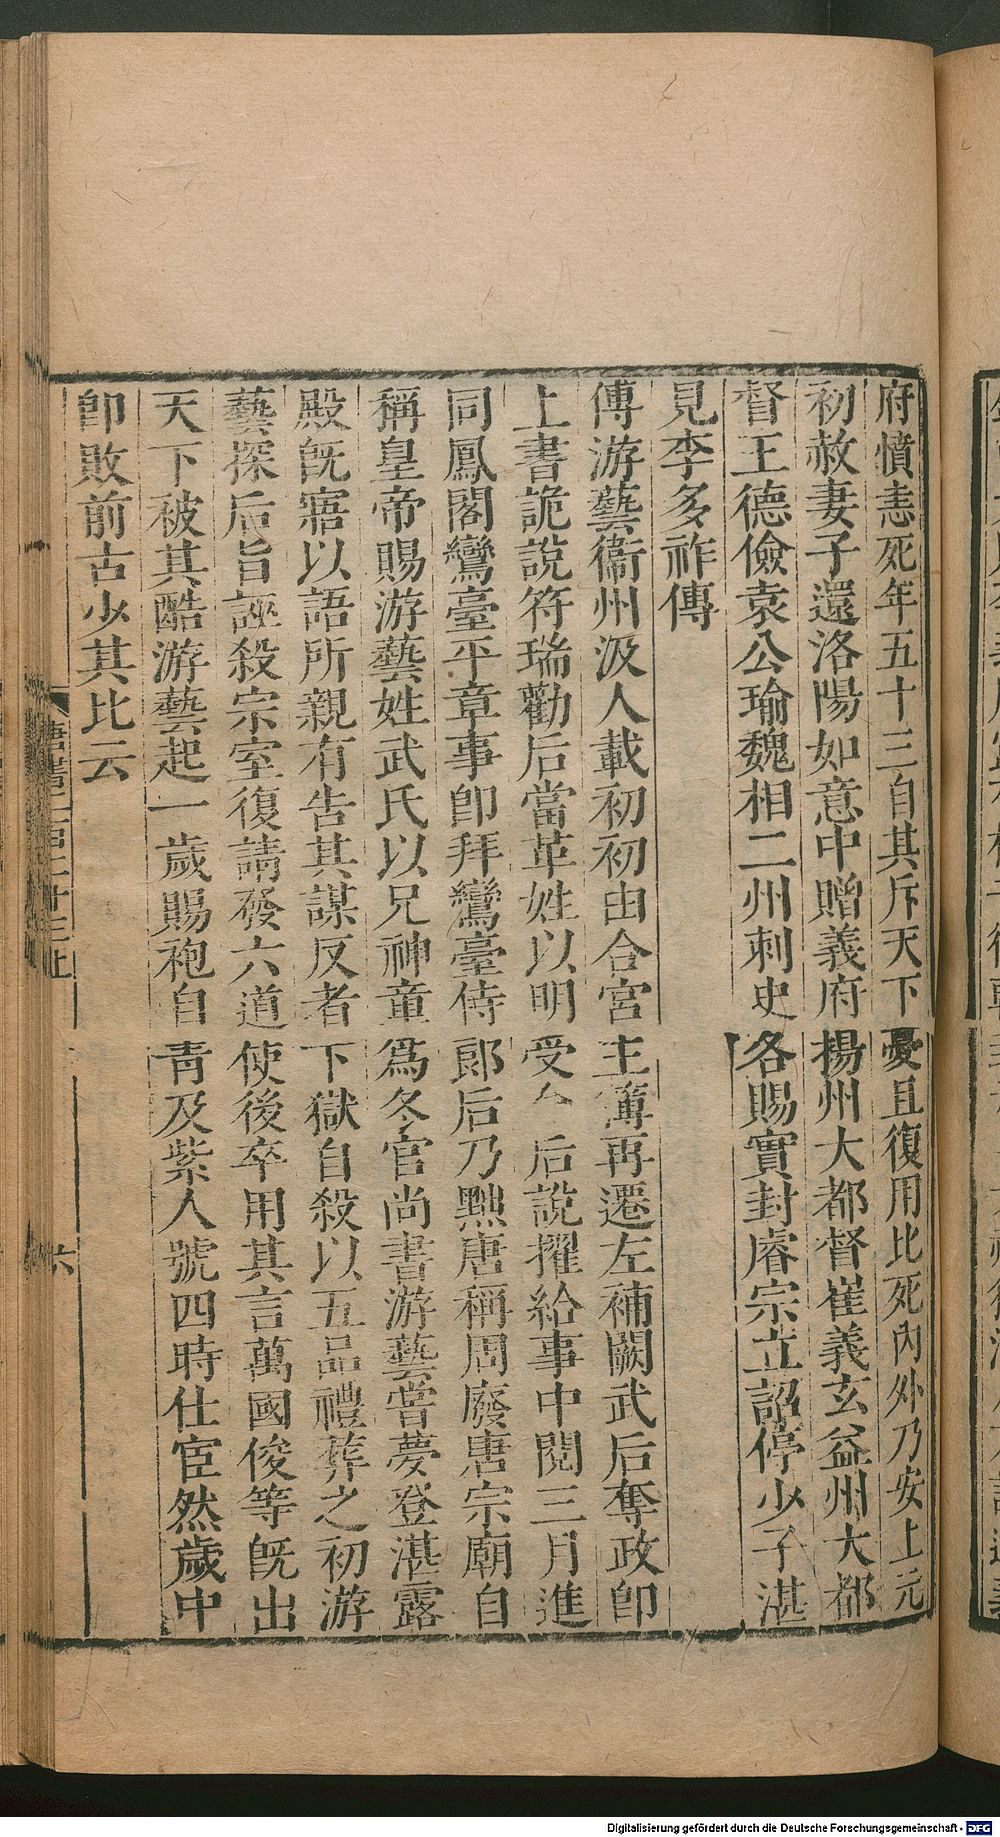 府憤恚死年五十三自其斥天下憂且復用比死內外乃安上元
初赦妻子還洛陽如意中贈義府揚州大都督崔義玄益州大都
督王德儉袁公瑜魏相二州刺史各賜實封睿宗立詔停少子湛
見李多祚傳
傅游藝衞州汲人載初初由合宮主簿再遷左補闕武后奪政卽
上書詭說符瑞勸后當革姓以明受 后說擢給事中閱三月進
同鳳閣鸞臺平章事卽拜鸞臺侍郎后乃黜唐稱周廢唐宗廟自
稱皇帝賜游藝姓武氏以兄神童爲冬官尚書游藝嘗夢登湛露
殿旣寤以語所親有告其謀反者下獄自殺以五品禮葬之初游
藝探后旨誣殺宗室復請發六道使後卒用其言萬國俊等旣出
天下被其酷游藝起一歲賜袍自青及紫人號四時仕宦然歲中
卽敗前古少其比云
唐書二百二十三上
六
Digitalisierung gefördert durch die Deutsche Forschungsgemeinschaft - DFG